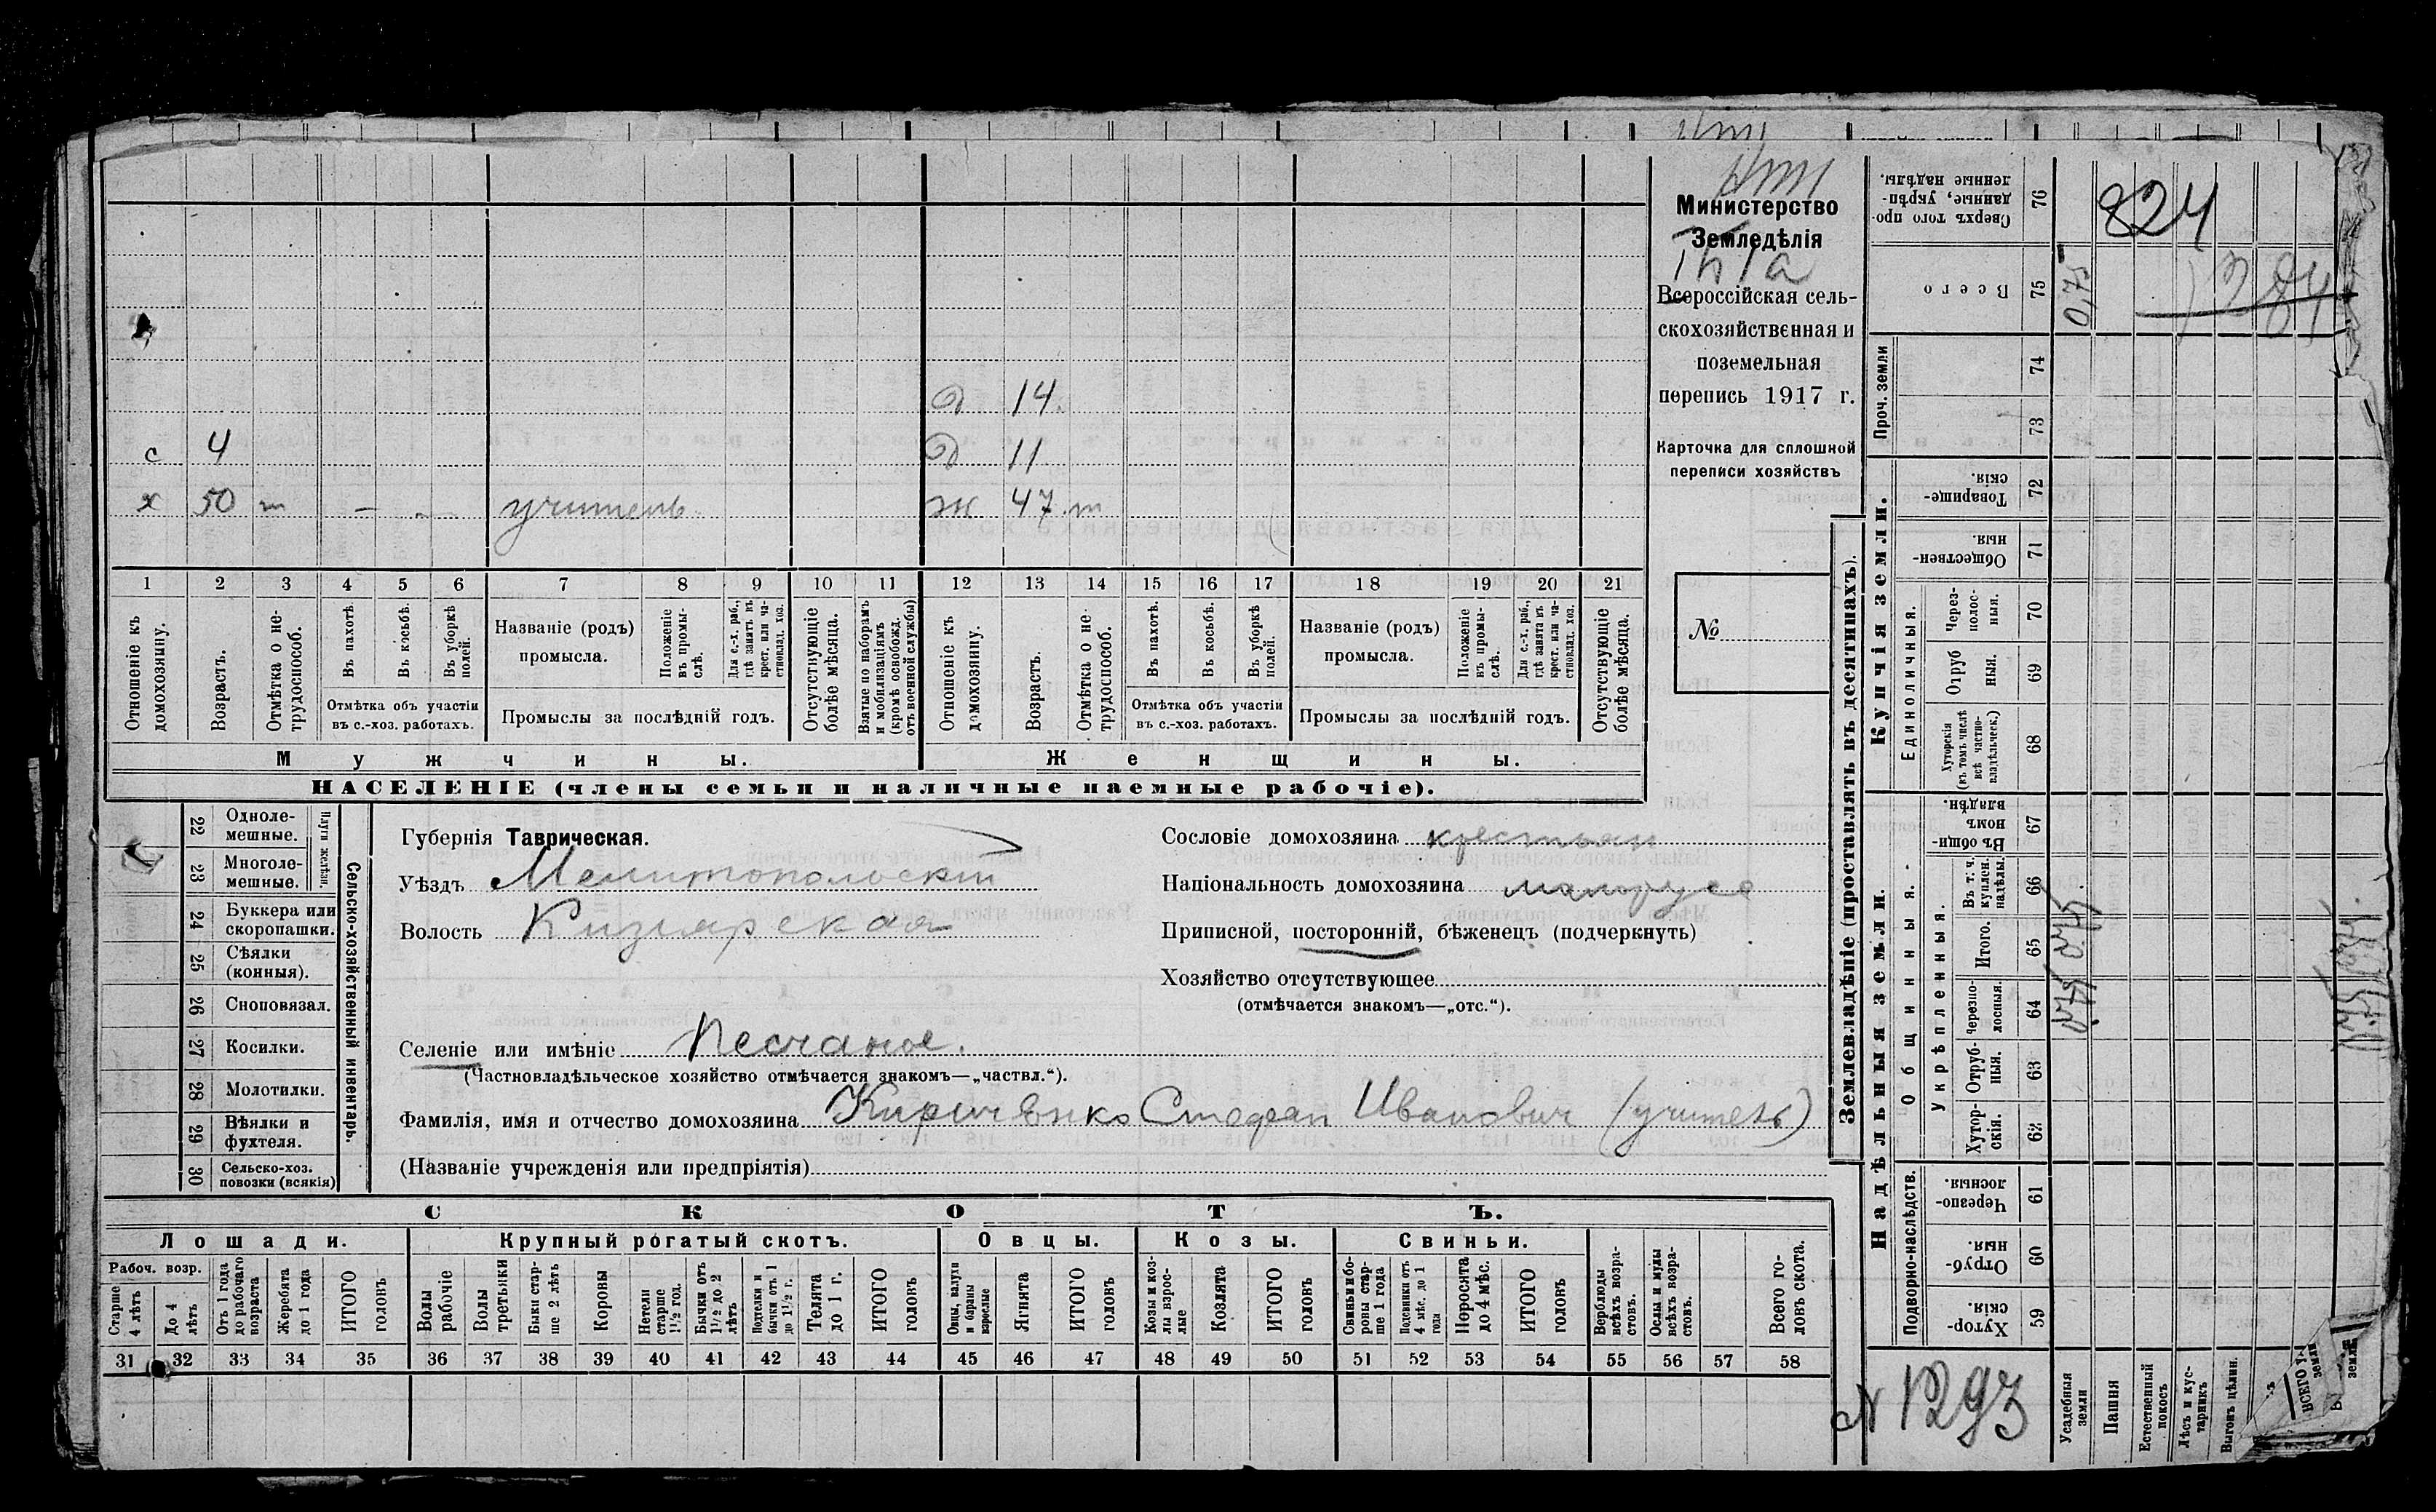 Министерство
Земледѣлія
Всероссійская сель-
скохозяйственная и
поземельная
перепись 1917 г.
Карточка для сплошной
переписи хозяйствъ
№
д 14.
с 4 д 11
х 50 т — — учитель ж 47 т
1 2 3 4 5 6 7 8 9 10 11 12 13 14 15 16 17 18 19 20 21
Отношеніе къ домохозяину.
Возрастъ.
Отмѣтка о не-трудоспособ.
Въ пахотѣ.
Въ косьбѣ.
Въ уборкѣ полей.
Отмѣтка объ участіи
въ с.-хоз. работахъ.
Названіе (родъ)
промысла.
Положеніе въ промы-слѣ.
Для с.-х. раб., гдѣ занятъ въ крест. или ча-стновлад. хоз.
Промыслы за послѣдній годъ.
Отсутствующіе болѣе мѣсяца.
Взятые по наборамъ и мобилизаціямъ (кромѣ освобожд. отъ военной службы)
Отношеніе къ домохозяину.
Возрастъ.
Отмѣтка о не-трудоспособ.
Въ пахотѣ.
Въ косьбѣ.
Въ уборкѣ полей.
Отмѣтка объ участіи
въ с.-хоз. работахъ.
Названіе (родъ)
промысла.
Положеніе въ промы-слѣ.
Для с.-х. раб., гдѣ занята въ крест. или ча-стновлад. хоз.
Промыслы за послѣдній годъ.
Отсутствующіе болѣе мѣсяца.
Мужчины. Женщины.
НАСЕЛЕНІЕ (члены семьи и наличные наемные рабочіе).
22 Однолемешные.
23 Многолемешные.
Плуги желѣзн.
24 Буккера или скоропашки.
25 Сѣялки (конныя).
26 Сноповязал.
27 Косилки.
28 Молотилки.
29 Вѣялки и фухтеля.
30 Сельско-хоз. повозки (всякія)
Сельско-хозяйственный инвентарь.
Губернія Таврическая.
Уѣздъ Мелитопольскій
Волость Кизіярская
Сословіе домохозяина крестьян
Національность домохозяина малорусс
Приписной, посторонній, бѣженецъ (подчеркнуть)
Хозяйство отсутствующее
(отмѣчается знакомъ—„отс.“).
Селеніе или имѣніе Песчаное.
(Частновладѣльческое хозяйство отмѣчается знакомъ—„частвл.“).
Фамилія, имя и отчество домохозяина Кириченко Стефан Иванович (учитель)
(Названіе учрежденія или предпріятія)
СКОТЪ.
Лошади. Крупный рогатый скотъ. Овцы. Козы. Свиньи.
Рабоч. возр.
Старше 4 лѣтъ
До 4 лѣтъ
Отъ 1 года до рабочаго возраста
Жеребята до 1 года
ИТОГО головъ
Волы рабочіе
Волы третьяки
Быки стар-ше 2 лѣтъ
Коровы
Нетели старше 1½ год.
Бычки отъ 1½ до 2 лѣтъ
Подтелки и бычки отъ 1 до 1½ г.
Телята до 1 г.
ИТОГО головъ
Овцы, валухи и бараны взрослые
Ягнята
ИТОГО головъ
Козы и коз-лы взрос-лые
Козлята
ИТОГО головъ
Свиньи и бо-ровы стар-ше 1 года
Подсвинки отъ 4 мѣс. до 1 года
Поросята до 4 мѣс.
ИТОГО головъ
Верблюды всѣхъ возра-стовъ.
Ослы и мулы всѣхъ возра-стовъ.
Всего го-ловъ скота.
31 32 33 34 35 36 37 38 39 40 41 42 43 44 45 46 47 48 49 50 51 52 53 54 55 56 57 58
Землевладѣніе (проставлять въ десятинахъ).
824
Сверхъ того про-данные, укрѣп-ленные надѣлы. 76
Всего 75 0,75
Проч. земли 74
73
Купчія земли.
Товарище-скія. 72
Обществен-ныя. 71
Единоличныя.
Через-полос-ныя. 70
Отруб ныя. 69
Хуторскія (въ томъ числѣ всѣ частно-владѣльческ.) 68
Надѣльныя земли.
Общинныя.
Въ общи-номъ владѣн. 67
Въ т. ч. куплен. надѣлы. 66
Укрѣпленныя.
Итого. 65 0,75
Черезпо-лосныя. 64 0,75
Отруб-ныя. 63
Хутор-скія. 62
Подворно-наслѣдств.
Черезпо-лосныя 61
Отруб-ныя. 60
Хутор-скія. 59
№ 1293
Усадебныя земли
Пашня
Естественный покосъ
Лѣсъ и кус-тарникъ
Выгонъ цѣлин.